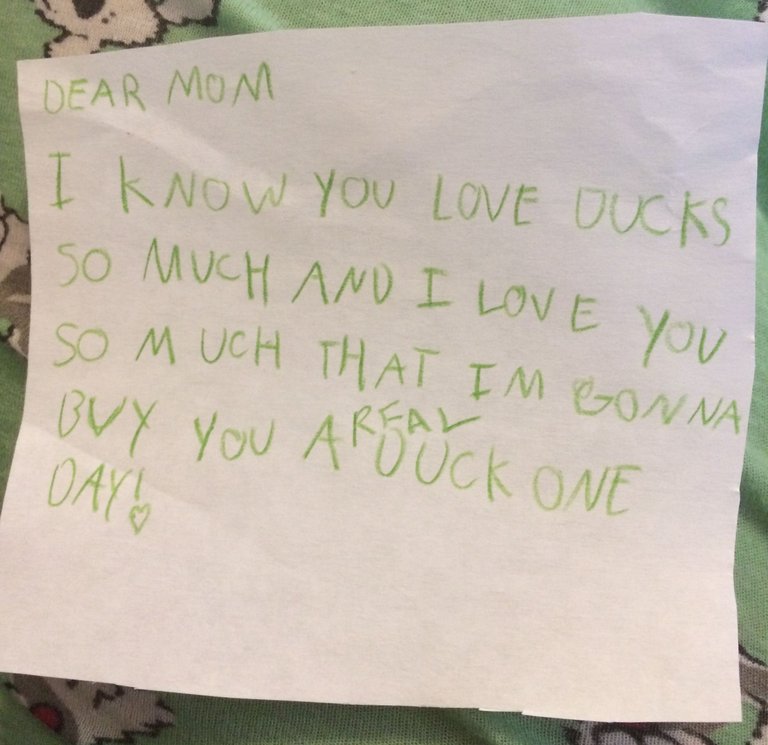 DEAR MOM
I KNOW YOU LOVE DUCKS
SO MUCH AND I LOVE YOU
SO MUCH THAT IM GONNA
BUY YOU A REAL DUCK ONE
DAY! ♡